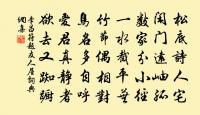 松底詩人宅
閑門遠岫孤
數家分小徑
一水截平蕪
竹節偶相對
鳥名多自呼
愛君真靜者
欲去又踟躕
李昌符題友人屋詞典
網集